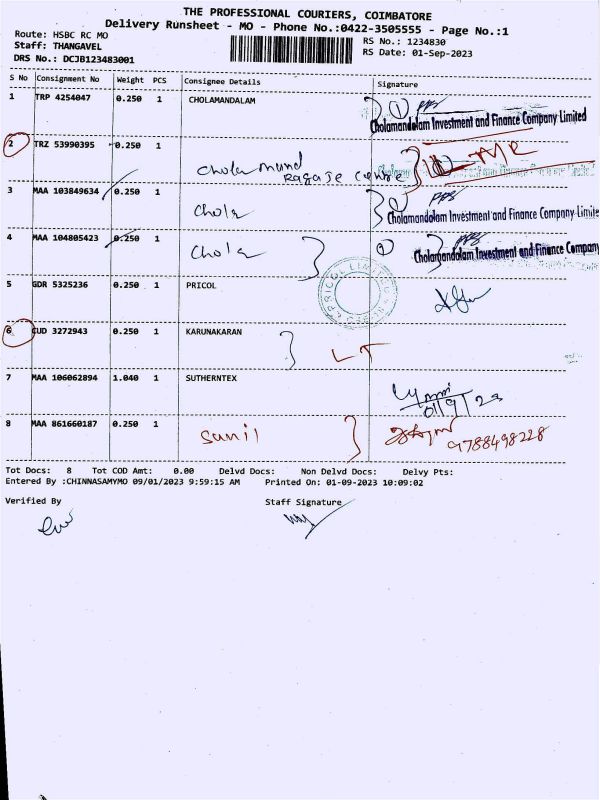 THE PROFESSIONAL COURIERS, COIMBATORE
Delivery Runsheet - MO - Phone No.:0422-3505555 - Page No.:1
Route: HSBC RC MO
RS No.: 1234830
Staff: THANGAVEL
RS Date: 01-Sep-2023
DRS No.: DCJB123483001
S No Consignment No Weight PCS Consignee Details Signature
1 TRP 4254047 0.250 1 CHOLAMANDALAM 1
Cholamandalam Investment and Finance Company Limited
2 TRZ 53990395 0.250 1
Chola mund
3 MAA 103849634 0.250 1 Chola
Cholamandalam Investment and Finance Company Limite
4 MAA 104805423 0.250 1 Chola
Cholamandalam Investment and Finance Company
5 GDR 5325236 0.250 1 PRICOL
PRICOL LIMITED
6 CUD 3272943 0.250 1 KARUNAKARAN
LT
7 MAA 106062894 1.040 1 SUTHERNTEX
01/9/23
8 MAA 861660187 0.250 1 Sunil
9788498228
Tot Docs: 8 Tot COD Amt: 0.00 Delvd Docs: Non Delvd Docs: Delvy Pts:
Entered By :CHINNASAMYMO 09/01/2023 9:59:15 AM Printed On: 01-09-2023 10:09:02
Verified By Staff Signature